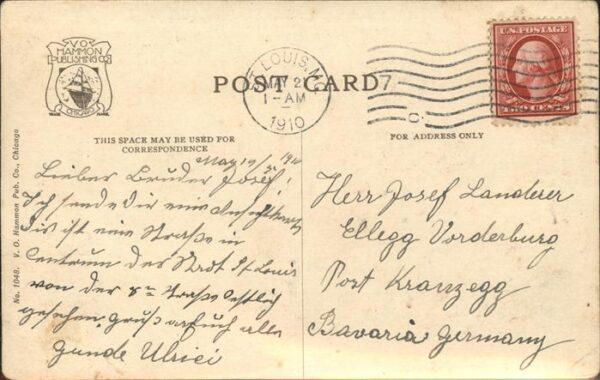 V.O.
HAMMON
PUBLISHING CO.
CHICAGO
ST. LOUIS, MO.
MAY 2
1-AM
1910
POST CARD
7
C
U.S. POSTAGE
TWO CENTS
THIS SPACE MAY BE USED FOR
CORRESPONDENCE
FOR ADDRESS ONLY
No. 1048. V. O. Hammon Pub. Co., Chicago
May 19/
Lieber Bruder Josef!
Ich sende Dir eine Ansichtkarte
Dis ist eine Straße in
Centrum der Stadt St Louis
von der 8ten Straße östlich
gesehen. Gruß an Euch alle
Ulrici
Herr Josef Landerer
Ellegg Vorderburg
Port Kranzegg
Bavaria Germany